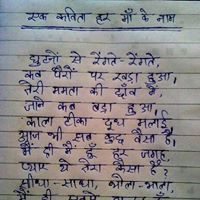 एक कविता हर माँ के नाम
घुटनों से रेंगते-रेंगते,
कब पैरों पर खड़ा हुआ,
तेरी ममता की छाँव में,
जाने कब बड़ा हुआ
काला टीका दूध मलाई
आज भी सब कुछ वैसा है,
मैं ही मैं हूँ हर जगह,
प्यार ये तेरा कैसा है?
सीधा-साधा, भोला-भाला,
मैं ही सबसे